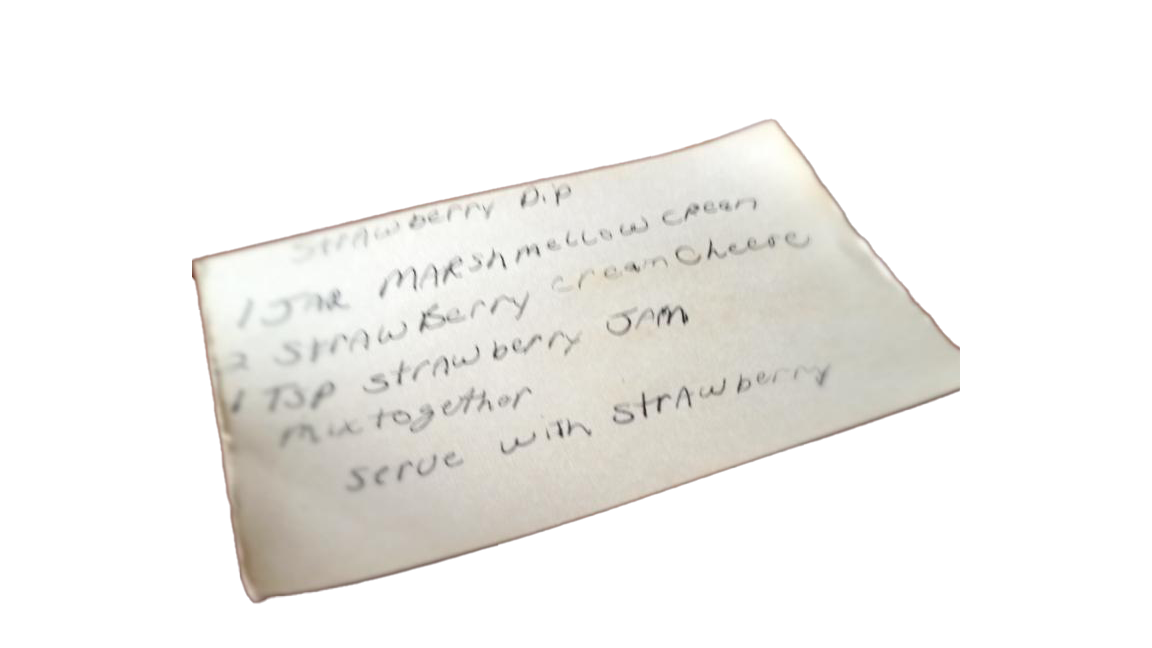 Strawberry Dip
1 JAR MARShmellow creen
2 StrawBerry creamCheese
1 TSP strawberry JAM
mix together
serve with strawberry